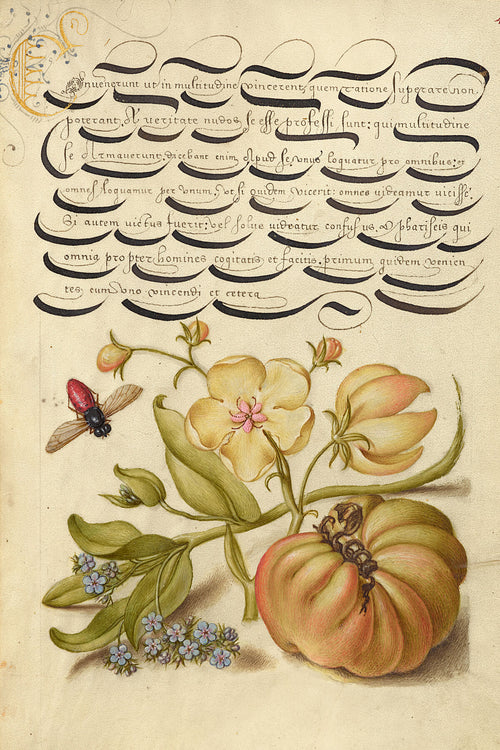 Convenerunt ut in multitudine vincerent, quem ratione superare non
poterant. A veritate nudos se esse professi sunt: qui multitudine
se Armaverunt, dicebant enim Apud se, unus loquatur pro omnibus: et
omnes loquamur per Unum, Vt si quidem vicerit: omnes videamur vicisse:
Si autem victus fuerit: Vel solus videatur confusus. O phariseis qui
omnia propter homines cogitatis et facitis. primum quidem venien
tes cum Uno vincendi et cetera
4.